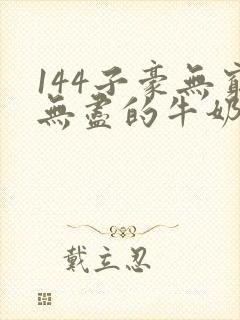 144子豪無窮
無盡的牛奶
戴立忍